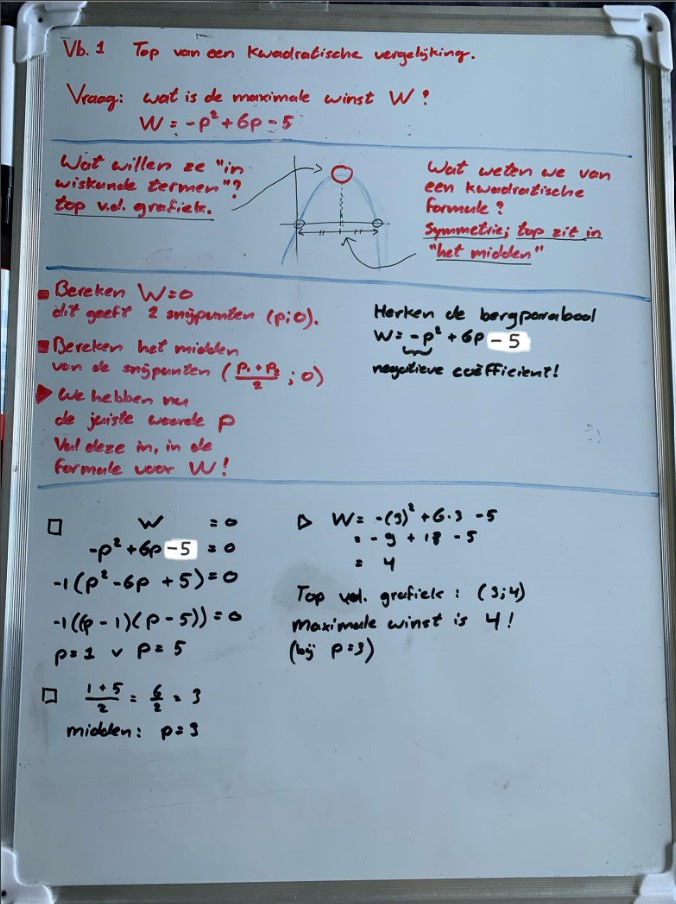 Vb. 1 Top van een kwadratische vergelijking.
Vraag: wat is de maximale winst W?
W = -p² + 6p - 5
Wat willen ze "in
wiskunde termen"?
top v.d. grafiek.
Wat weten we van
een kwadratische
formule?
Symmetrie; top zit in
"het midden"
Bereken W=0
dit geeft 2 snijpunten (p;0).
Bereken het midden
van de snijpunten ((p₁+p₂)/2 ; 0)
We hebben nu
de juiste waarde p
Vul deze in, in de
formule voor W!
Herken de bergparabool
W = -p² + 6p - 5
negatieve coëfficient!
W = 0
-p² + 6p - 5 = 0
-1(p² - 6p + 5) = 0
-1((p - 1)(p - 5)) = 0
p = 1 v p = 5
(1 + 5)/2 = 6/2 = 3
midden: p = 3
W = -(3)² + 6·3 - 5
= -9 + 18 - 5
= 4
Top v.d. grafiek: (3;4)
Maximale winst is 4!
(bij p=3)